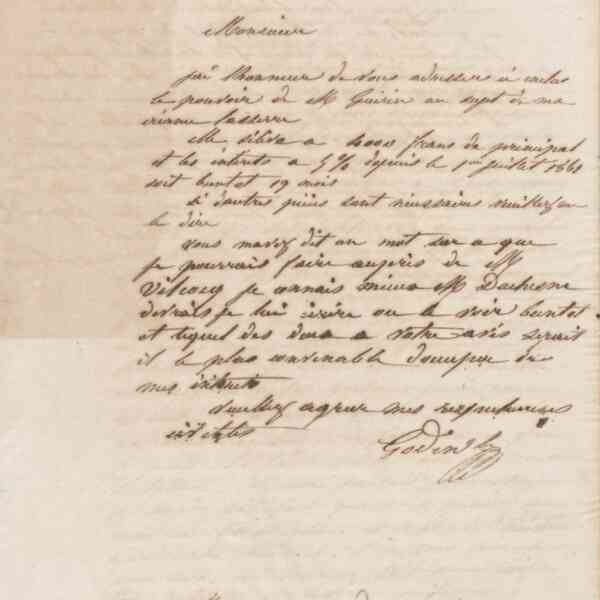 Monsieur
j'ai l'honneur de vous adresser ci inclus
le pouvoir de M Guérin au sujet de ma
créance Lasserre
Elle s'élève a 4000 francs de principal
et les intérêts a 5% depuis le 1er juillet 1861
soit bientot 19 mois
si d'autres pièces sont nécessaires veuillez me
le dire
vous m'avez dit un mot sur ce que
je pourrais faire auprès de M
je connais mieux M Duchesne
devrais-je lui écrire ou le voir bientot
et lequel des deux a votre avis serait
il le plus convenable d'occuper de
mes intérêts
Veuillez agréer mes respectueuses
civilités
Godin